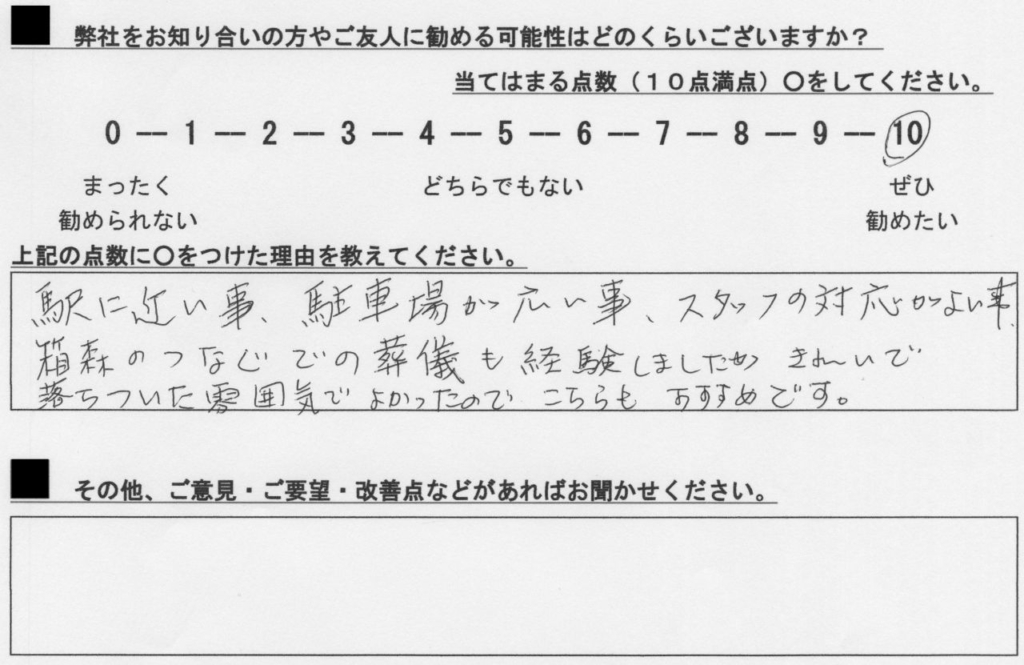 弊社をお知り合いの方やご友人に勧める可能性はどのくらいございますか？
当てはまる点数（１０点満点）〇をしてください。
0 ― 1 ― 2 ― 3 ― 4 ― 5 ― 6 ― 7 ― 8 ― 9 ― 10
まったく どちらでもない ぜひ
勧められない 勧めたい
上記の点数に〇をつけた理由を教えてください。
駅に近い事、駐車場が広い事、スタッフの対応がよい事、
箱森のつなぐでの葬儀も経験しましたが きれいで
落ちついた雰囲気で よかったので こちらも おすすめです。
その他、ご意見・ご要望・改善点などがあればお聞かせください。